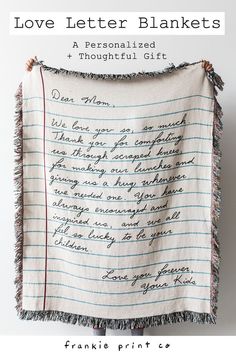 Love Letter Blankets
A Personalized
+ Thoughtful Gift
Dear Mom,
We love you so, so much
Thank you for comforting
us through scraped knees,
for making our lunches and
giving us a hug whenever
we needed one. You have
always encouraged and
inspired us, and we all
feel so lucky to be your
children.
Love you forever,
your Kids
frankie print co